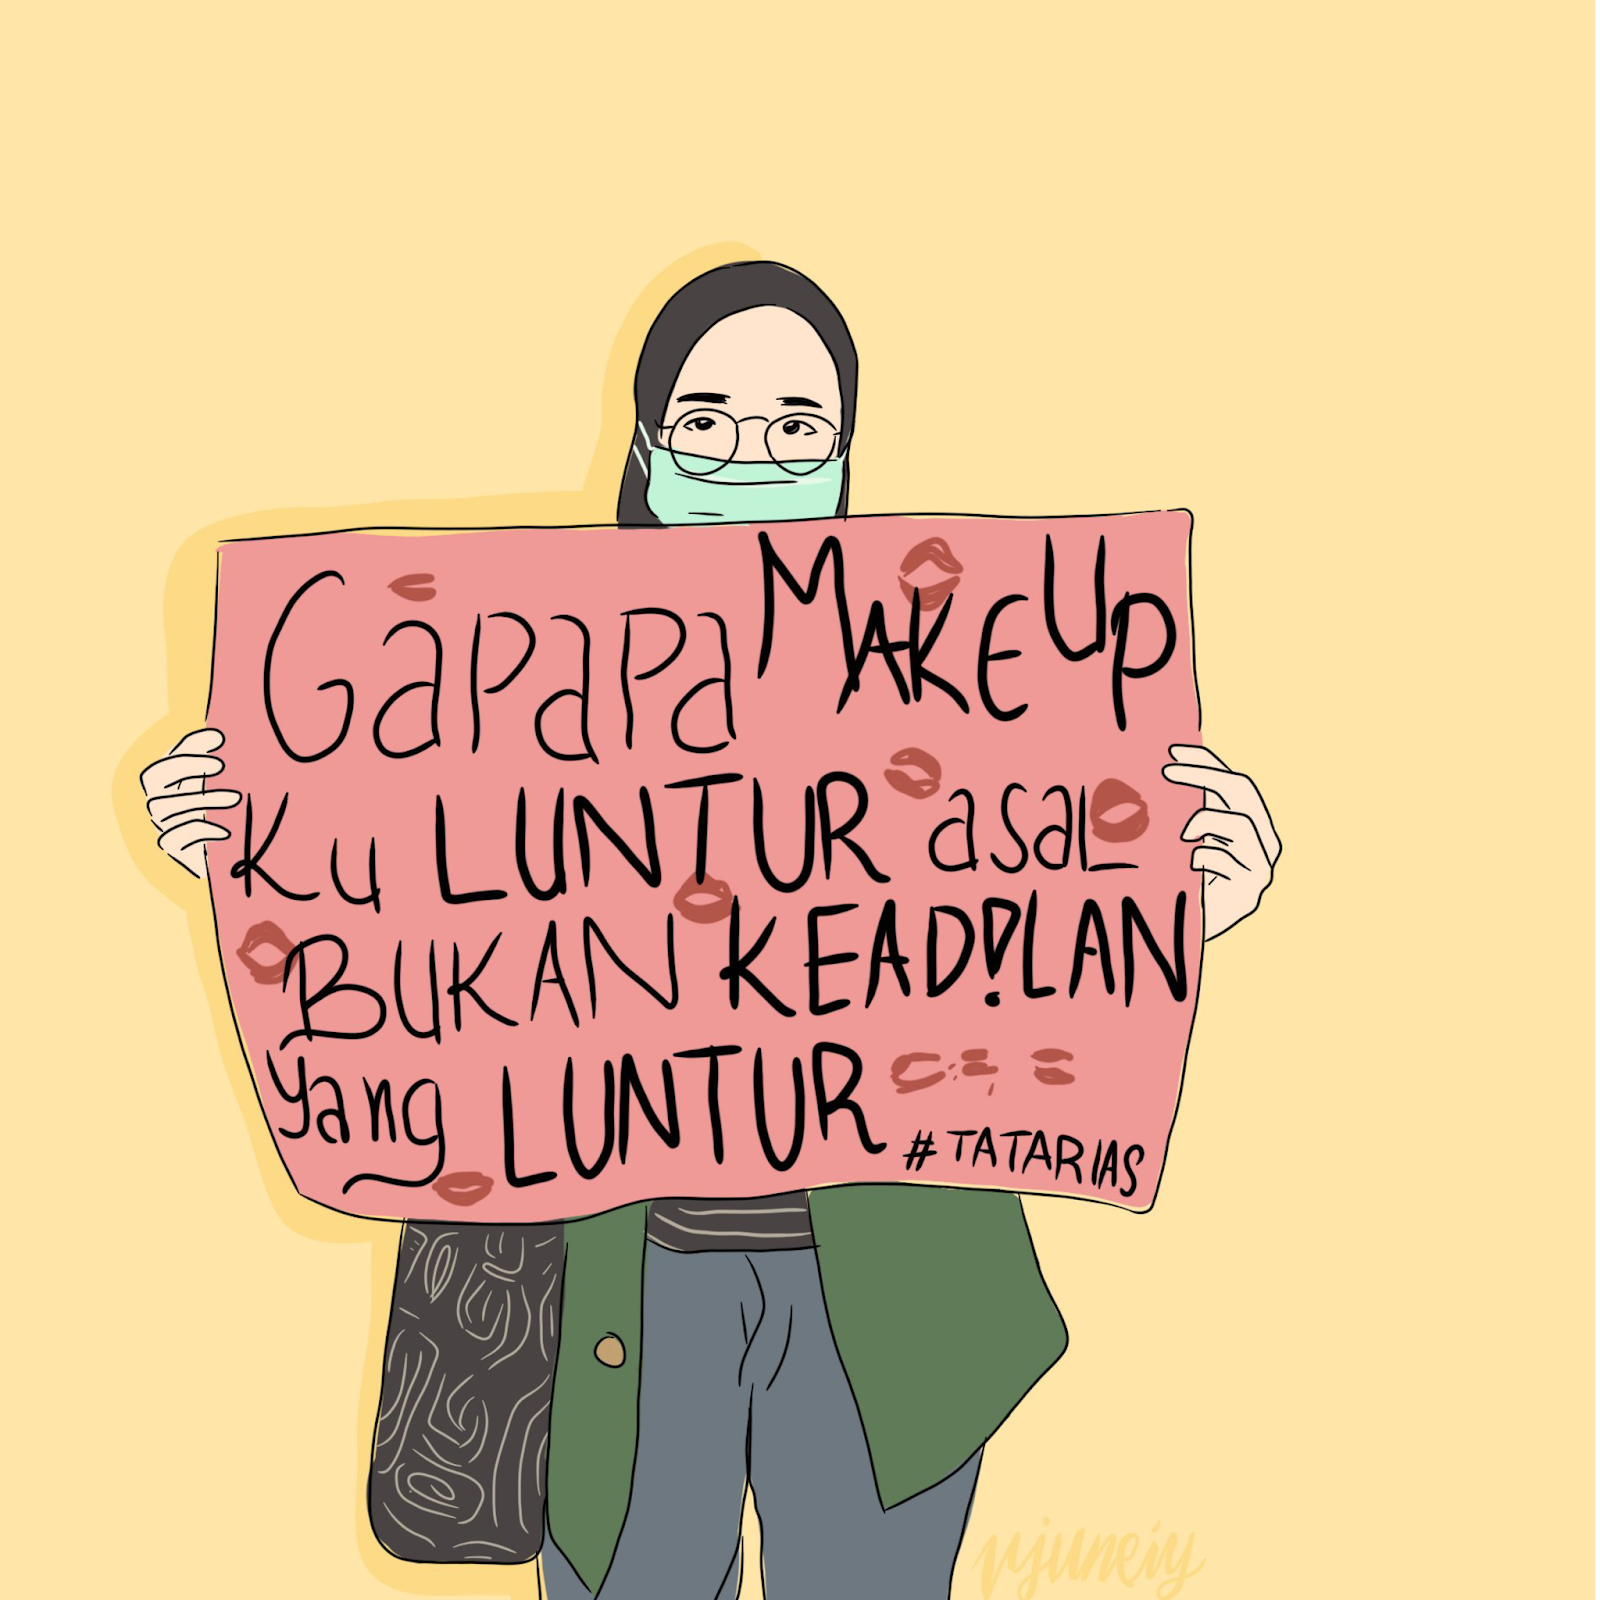 Gapapa MAKEUP
Ku LUNTUR asal
BUKAN KEAD!LAN
yang LUNTUR
#TATARIAS
vjuneiy